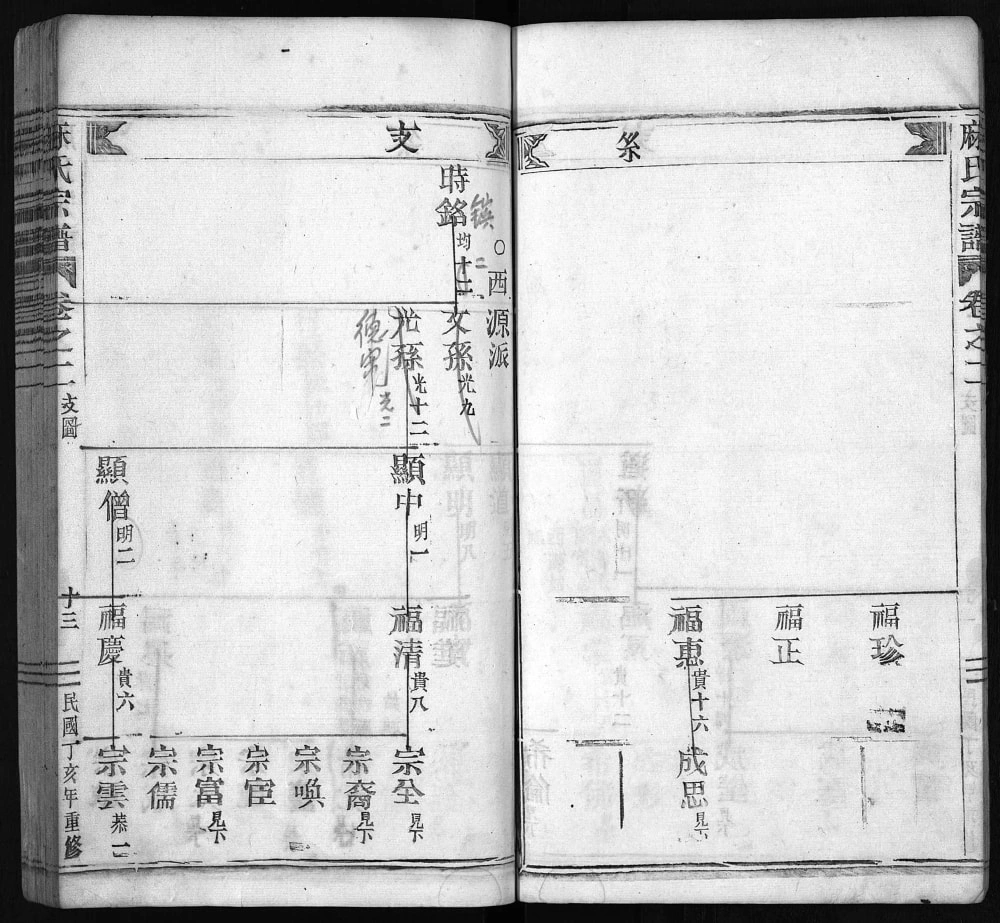 麻氏宗譜
卷之二
支圖
系
福珍
福正
福惠 貴十六
成思 見下
支
○西源派
時銘 均十二
鍈 二
文孫 光九
光孫 光十三
德
光二
顯中 明一
顯僧 明二
福清 貴八
福慶 貴六
宗全 見下
宗裔 見下
宗喚
宗宦
宗富 見下
宗儒
宗雲 恭一
麻氏宗譜
卷之二
支圖
十三
民國丁亥年重修